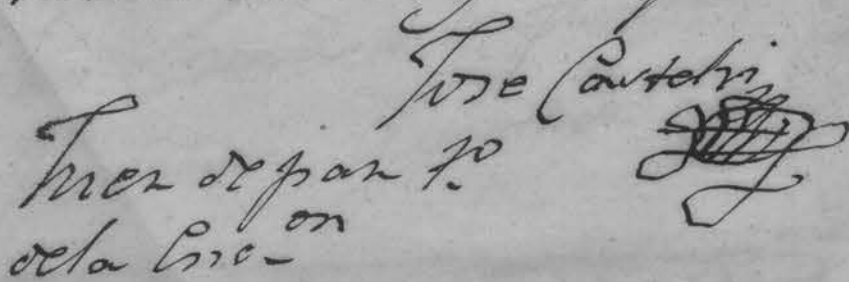 Jose Castelvi
Juez de paz 1º
de la Enc.on